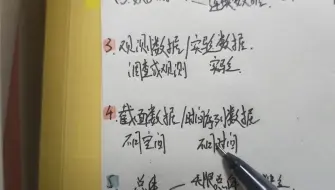 3. 观测数据/实验数据.
调查或观测 实验.
4. 截面数据/时间序列数据
不同空间 不同时间
5. 总体 无限总体